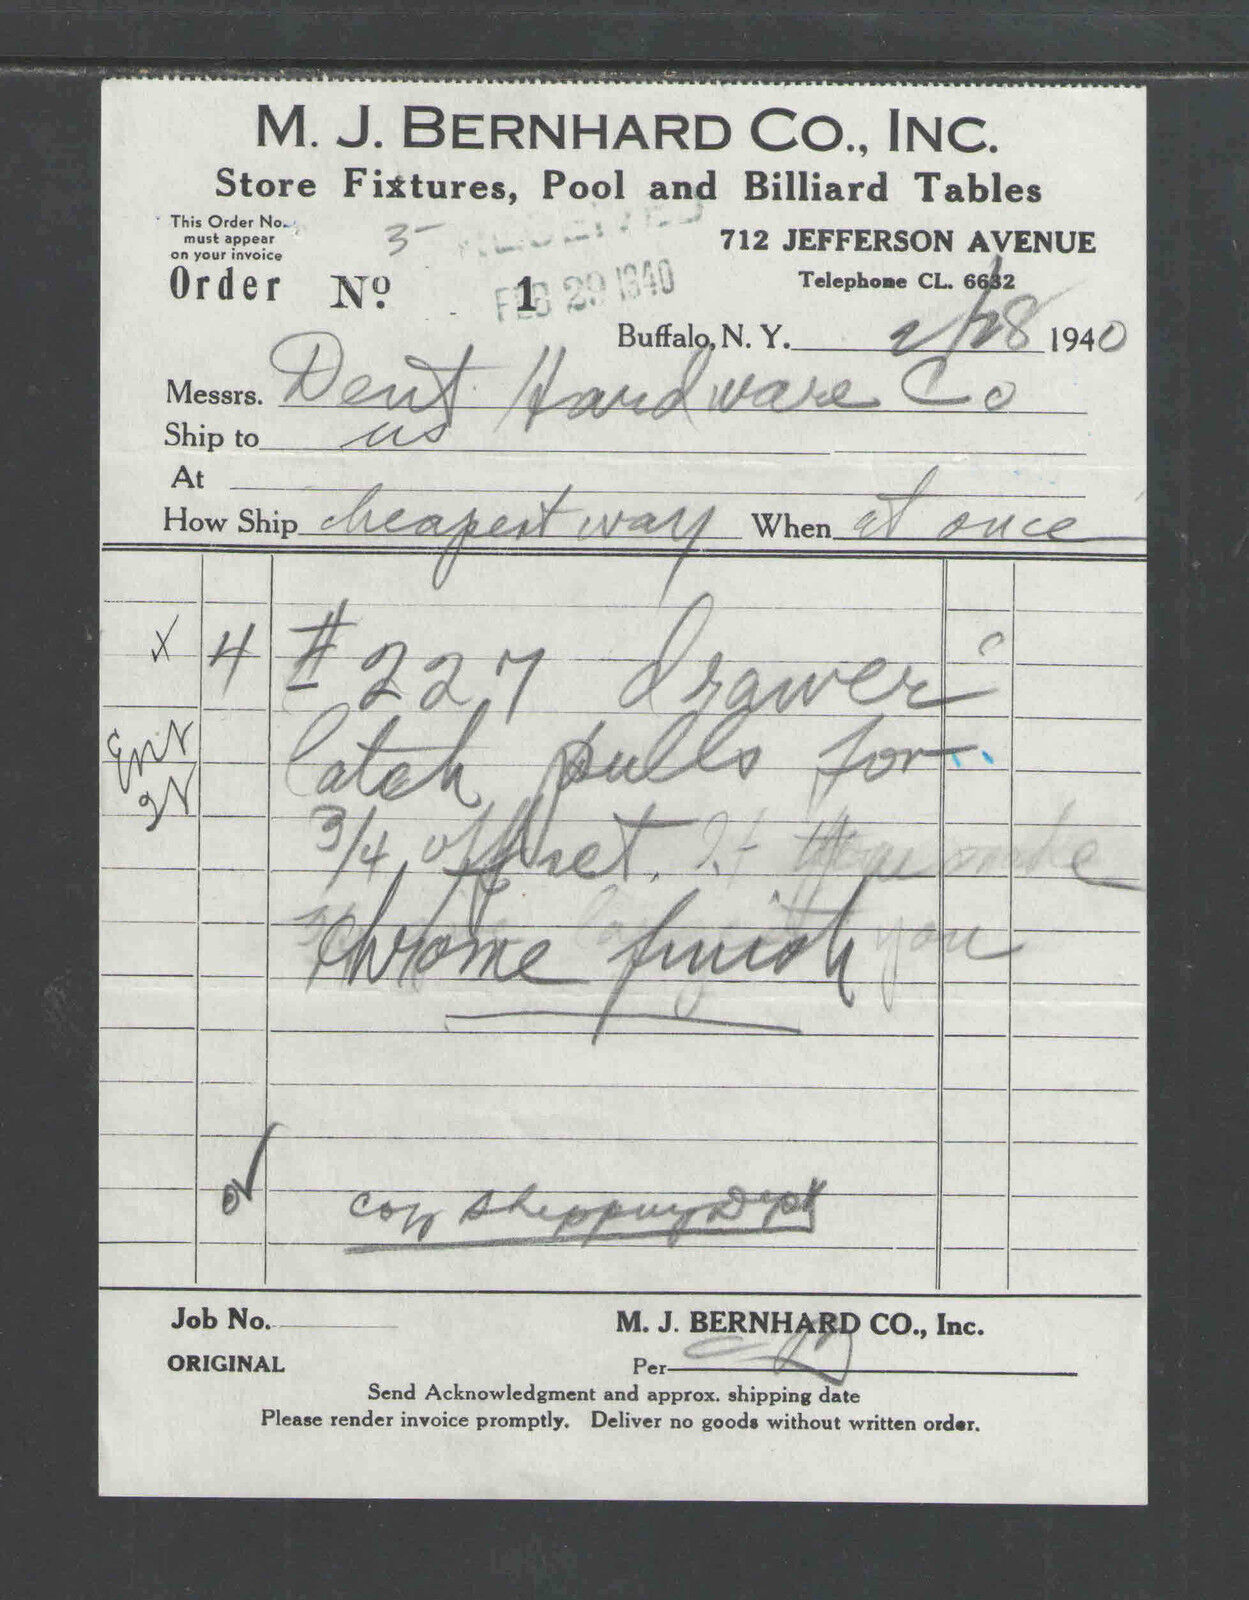 M. J. BERNHARD CO., INC.
Store Fixtures, Pool and Billiard Tables
This Order No.
must appear
on your invoice
3-
RECEIVED
712 JEFFERSON AVENUE
Telephone CL. 6632
Order Nº 1
FEB 29 1940
Buffalo, N. Y. 2/28 1940
Messrs. Dent Hardware Co
Ship to us
At
How Ship cheapest way When at once
x 4 #227 drawer
latch pulls for
3/4 offset. If
chrome finish you
Copy Shipping Dept
Job No.
M. J. BERNHARD CO., Inc.
ORIGINAL
Per
Send Acknowledgment and approx. shipping date
Please render invoice promptly. Deliver no goods without written order.